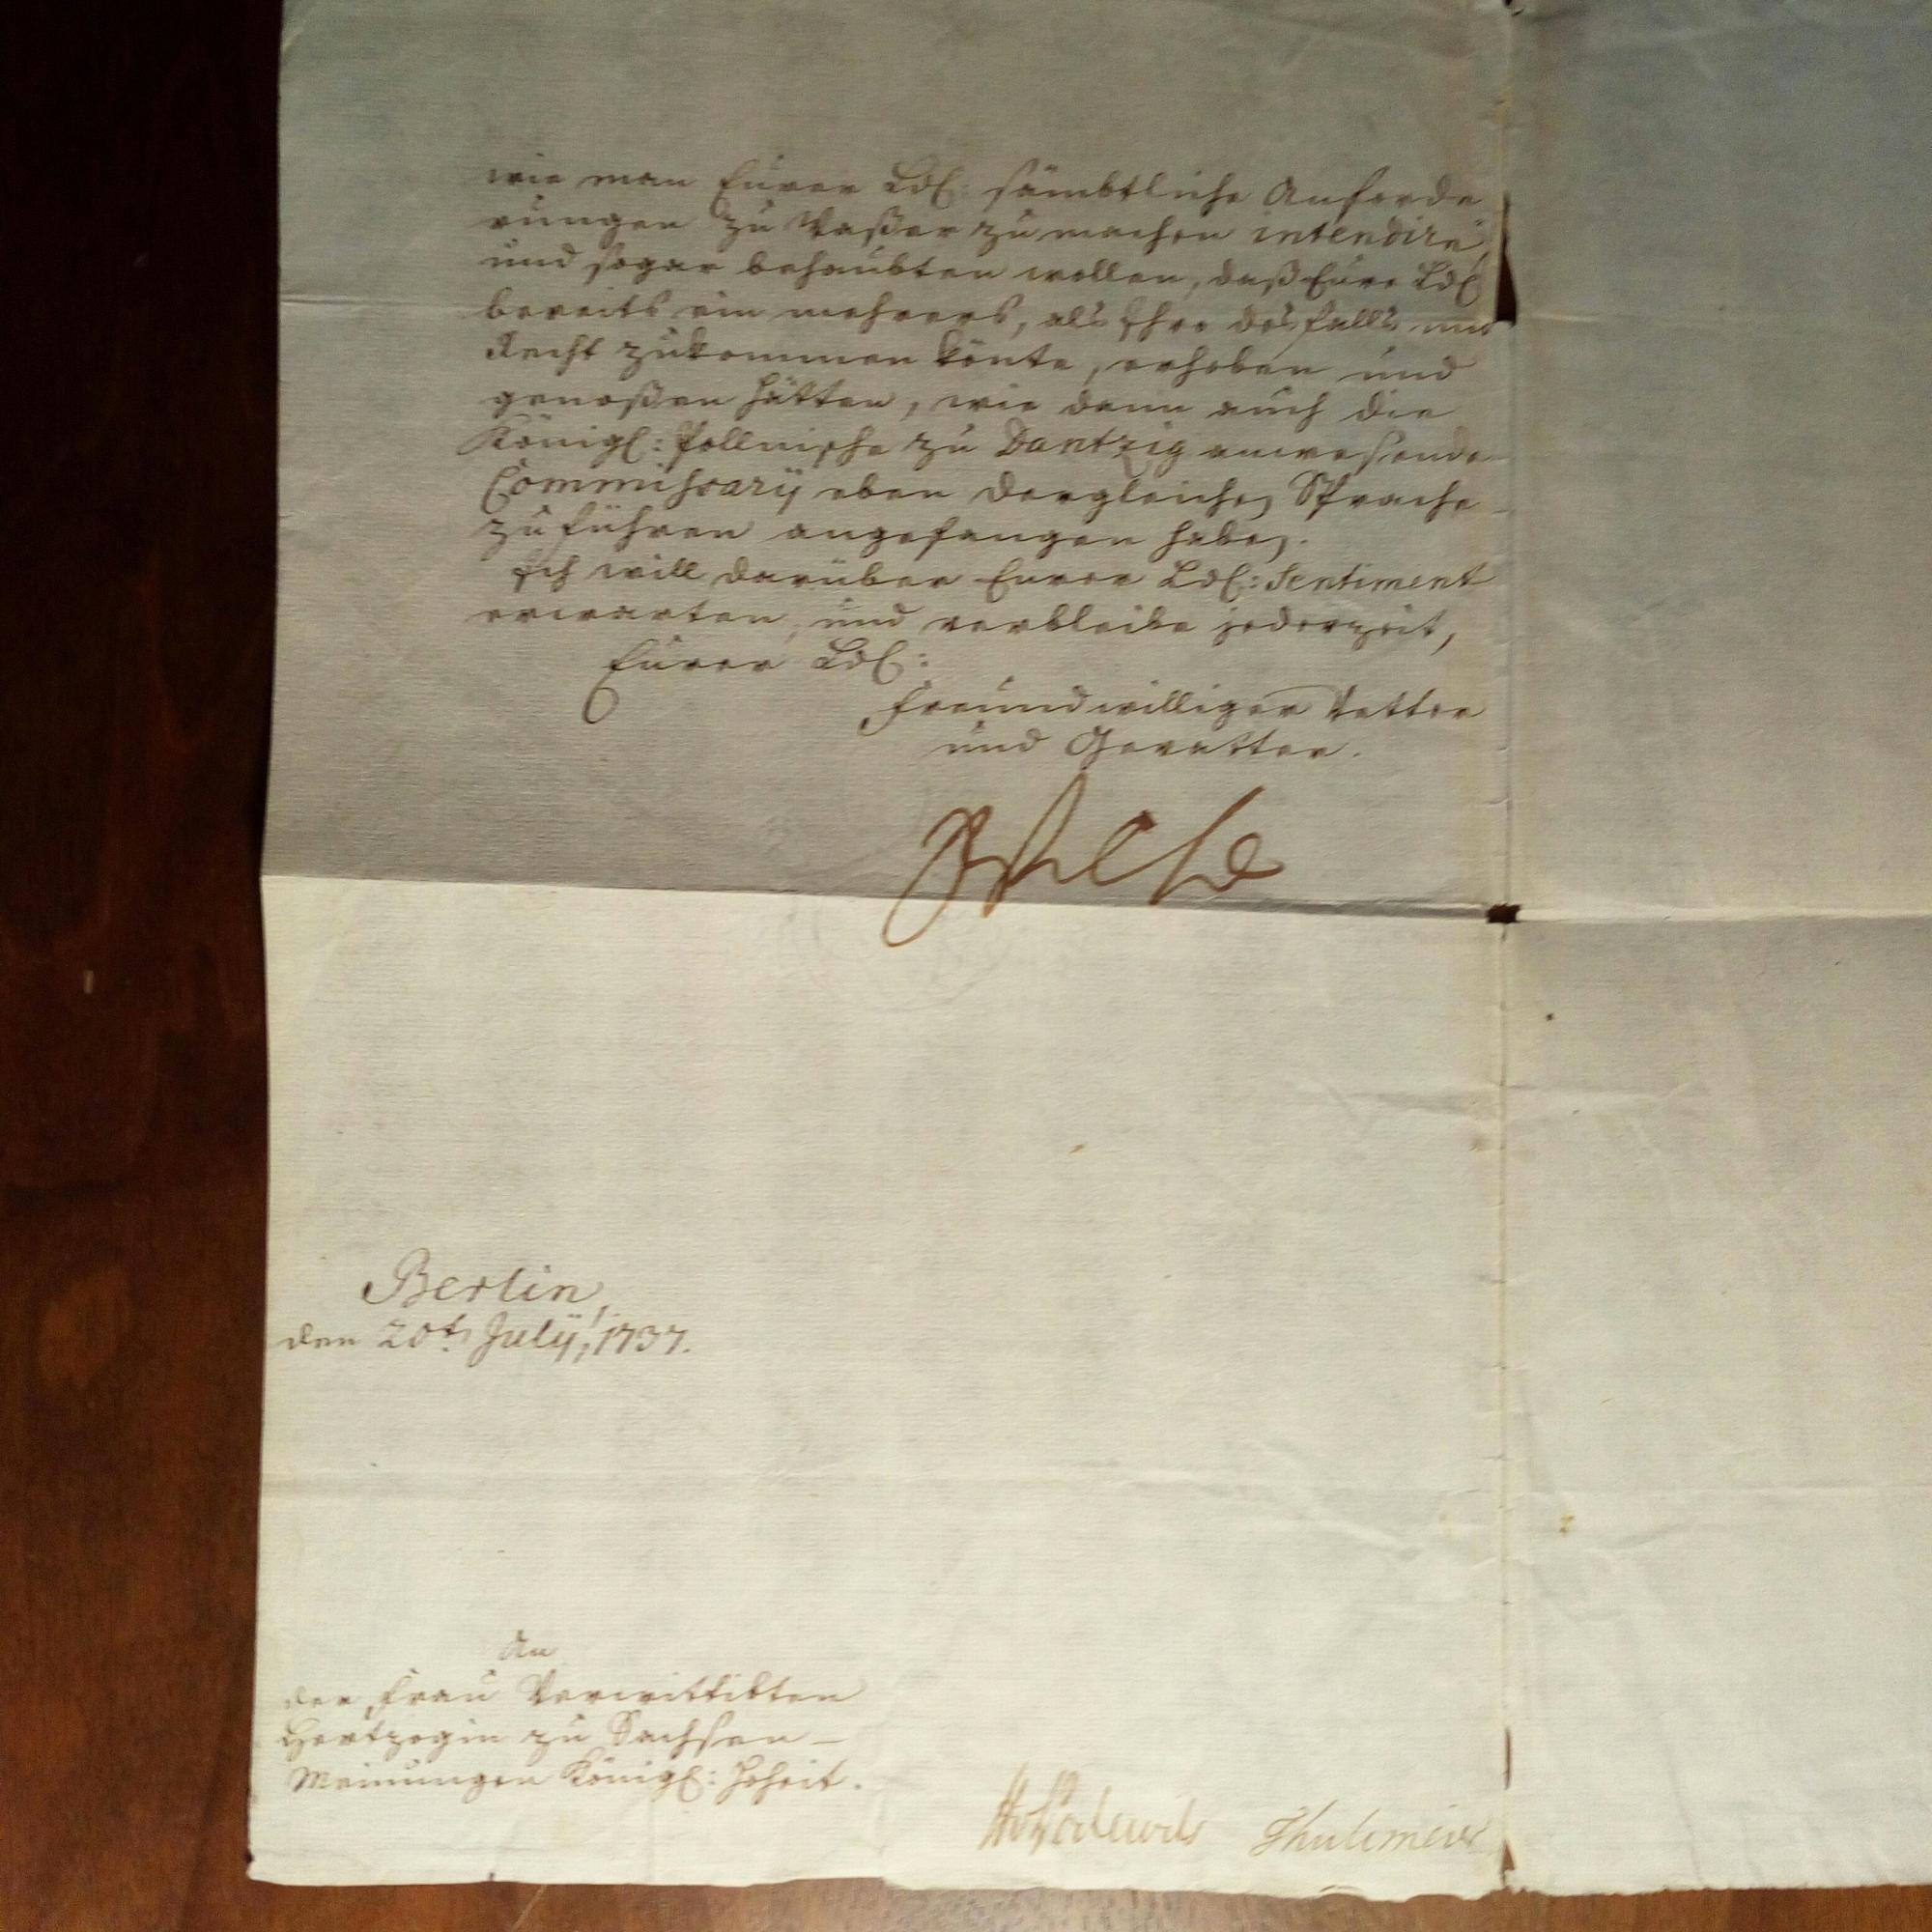 wie man Eurer Lbd: sämbtliche Anforde
rungen zu Waßer zu machen intendire,
und sogar behaubten wollen, daß Eure Lbd
bereits ein mehrers, als Ihro desfalls mit
Recht zukommen könte, erhoben und
genoßen hätten, wie dann auch die
Königl: Pollnische zu Dantzig anwesende
Commissarÿ eben dergleichen Sprache
zu führen angefangen haben.
Ich will darüber Eurer Lbd: Sentiment
erwarten, und verbleibe jederzeit,
Eurer Lbd:
Freundwilliger Vetter
und Gevatter.
Berlin,
den 20t. Julÿ, 1737.
An
der Frau Verwittibten
Hertzogin zu Sachsen-
Meinungen Königl: Hoheit.
Podewils Thulemeier